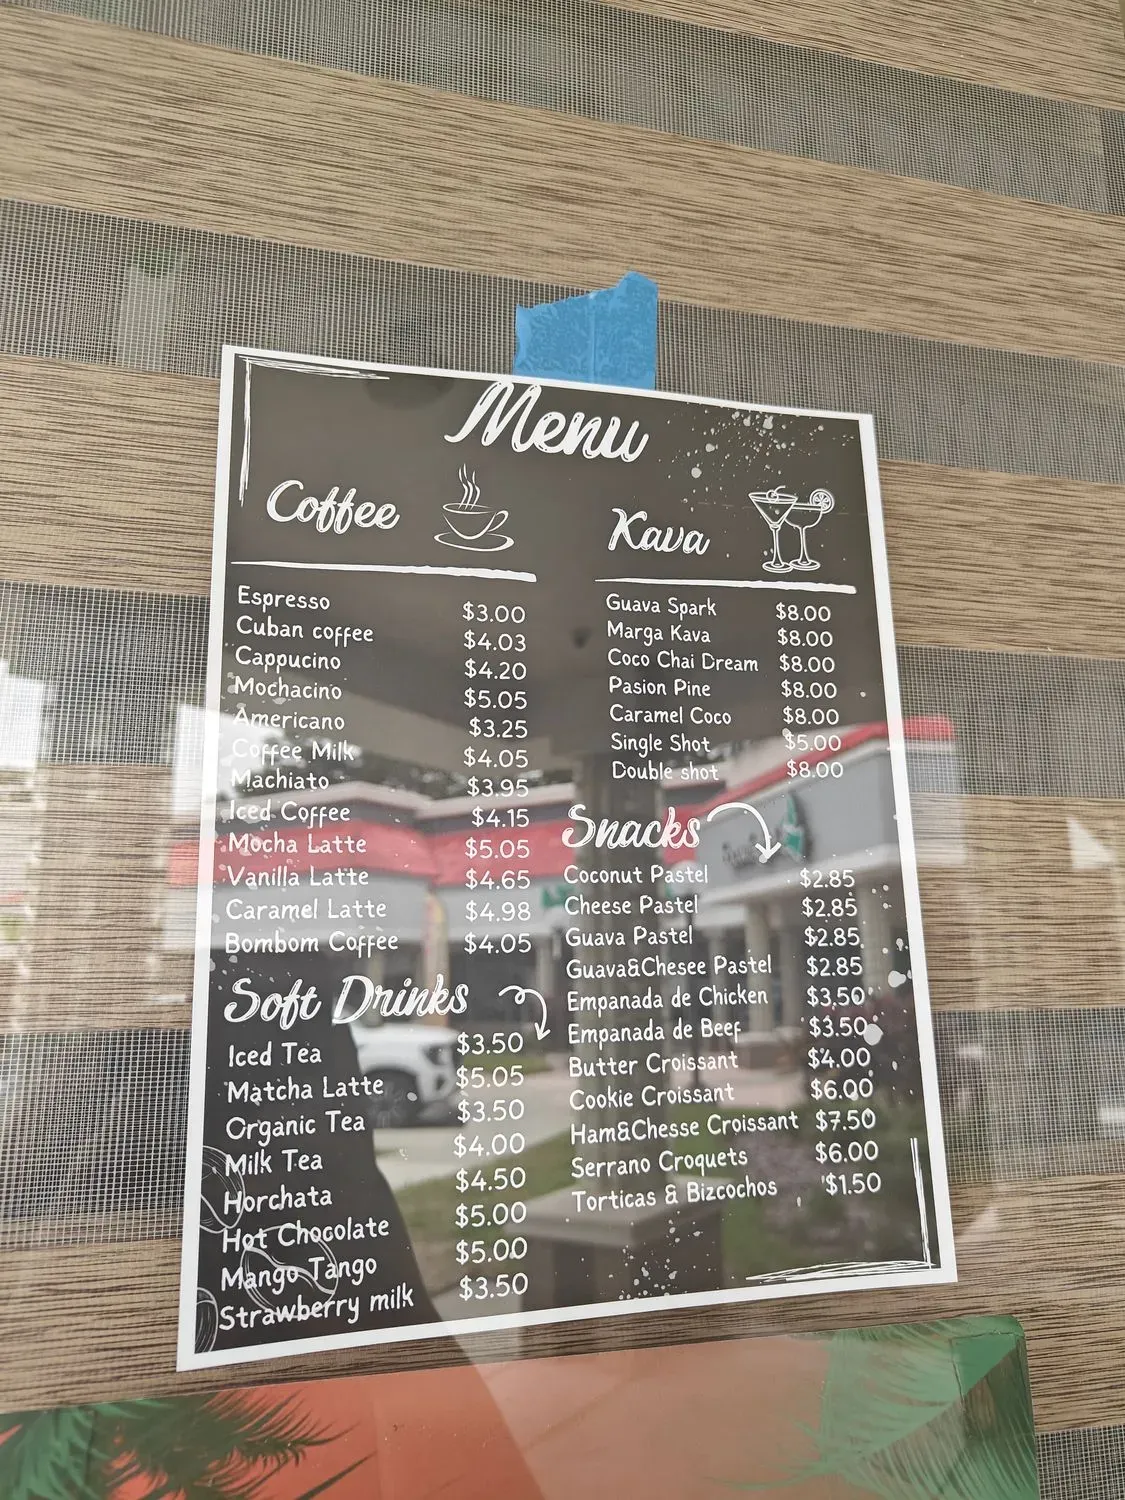 Menu
Coffee
Espresso $3.00
Cuban coffee $4.03
Cappucino $4.20
Mochacino $5.05
Americano $3.25
Coffee Milk $4.05
Machiato $3.95
Iced Coffee $4.15
Mocha Latte $5.05
Vanilla Latte $4.65
Caramel Latte $4.98
Bombom Coffee $4.05
Soft Drinks
Iced Tea $3.50
Matcha Latte $5.05
Organic Tea $3.50
Milk Tea $4.00
Horchata $4.50
Hot Chocolate $5.00
Mango Tango $5.00
Strawberry milk $3.50
Kava
Guava Spark $8.00
Marga Kava $8.00
Coco Chai Dream $8.00
Pasion Pine $8.00
Caramel Coco $8.00
Single Shot $5.00
Double shot $8.00
Snacks
Coconut Pastel $2.85
Cheese Pastel $2.85
Guava Pastel $2.85
Guava&Chesee Pastel $2.85
Empanada de Chicken $3.50
Empanada de Beef $3.50
Butter Croissant $4.00
Cookie Croissant $6.00
Ham&Chesse Croissant $7.50
Serrano Croquets $6.00
Torticas & Bizcochos $1.50